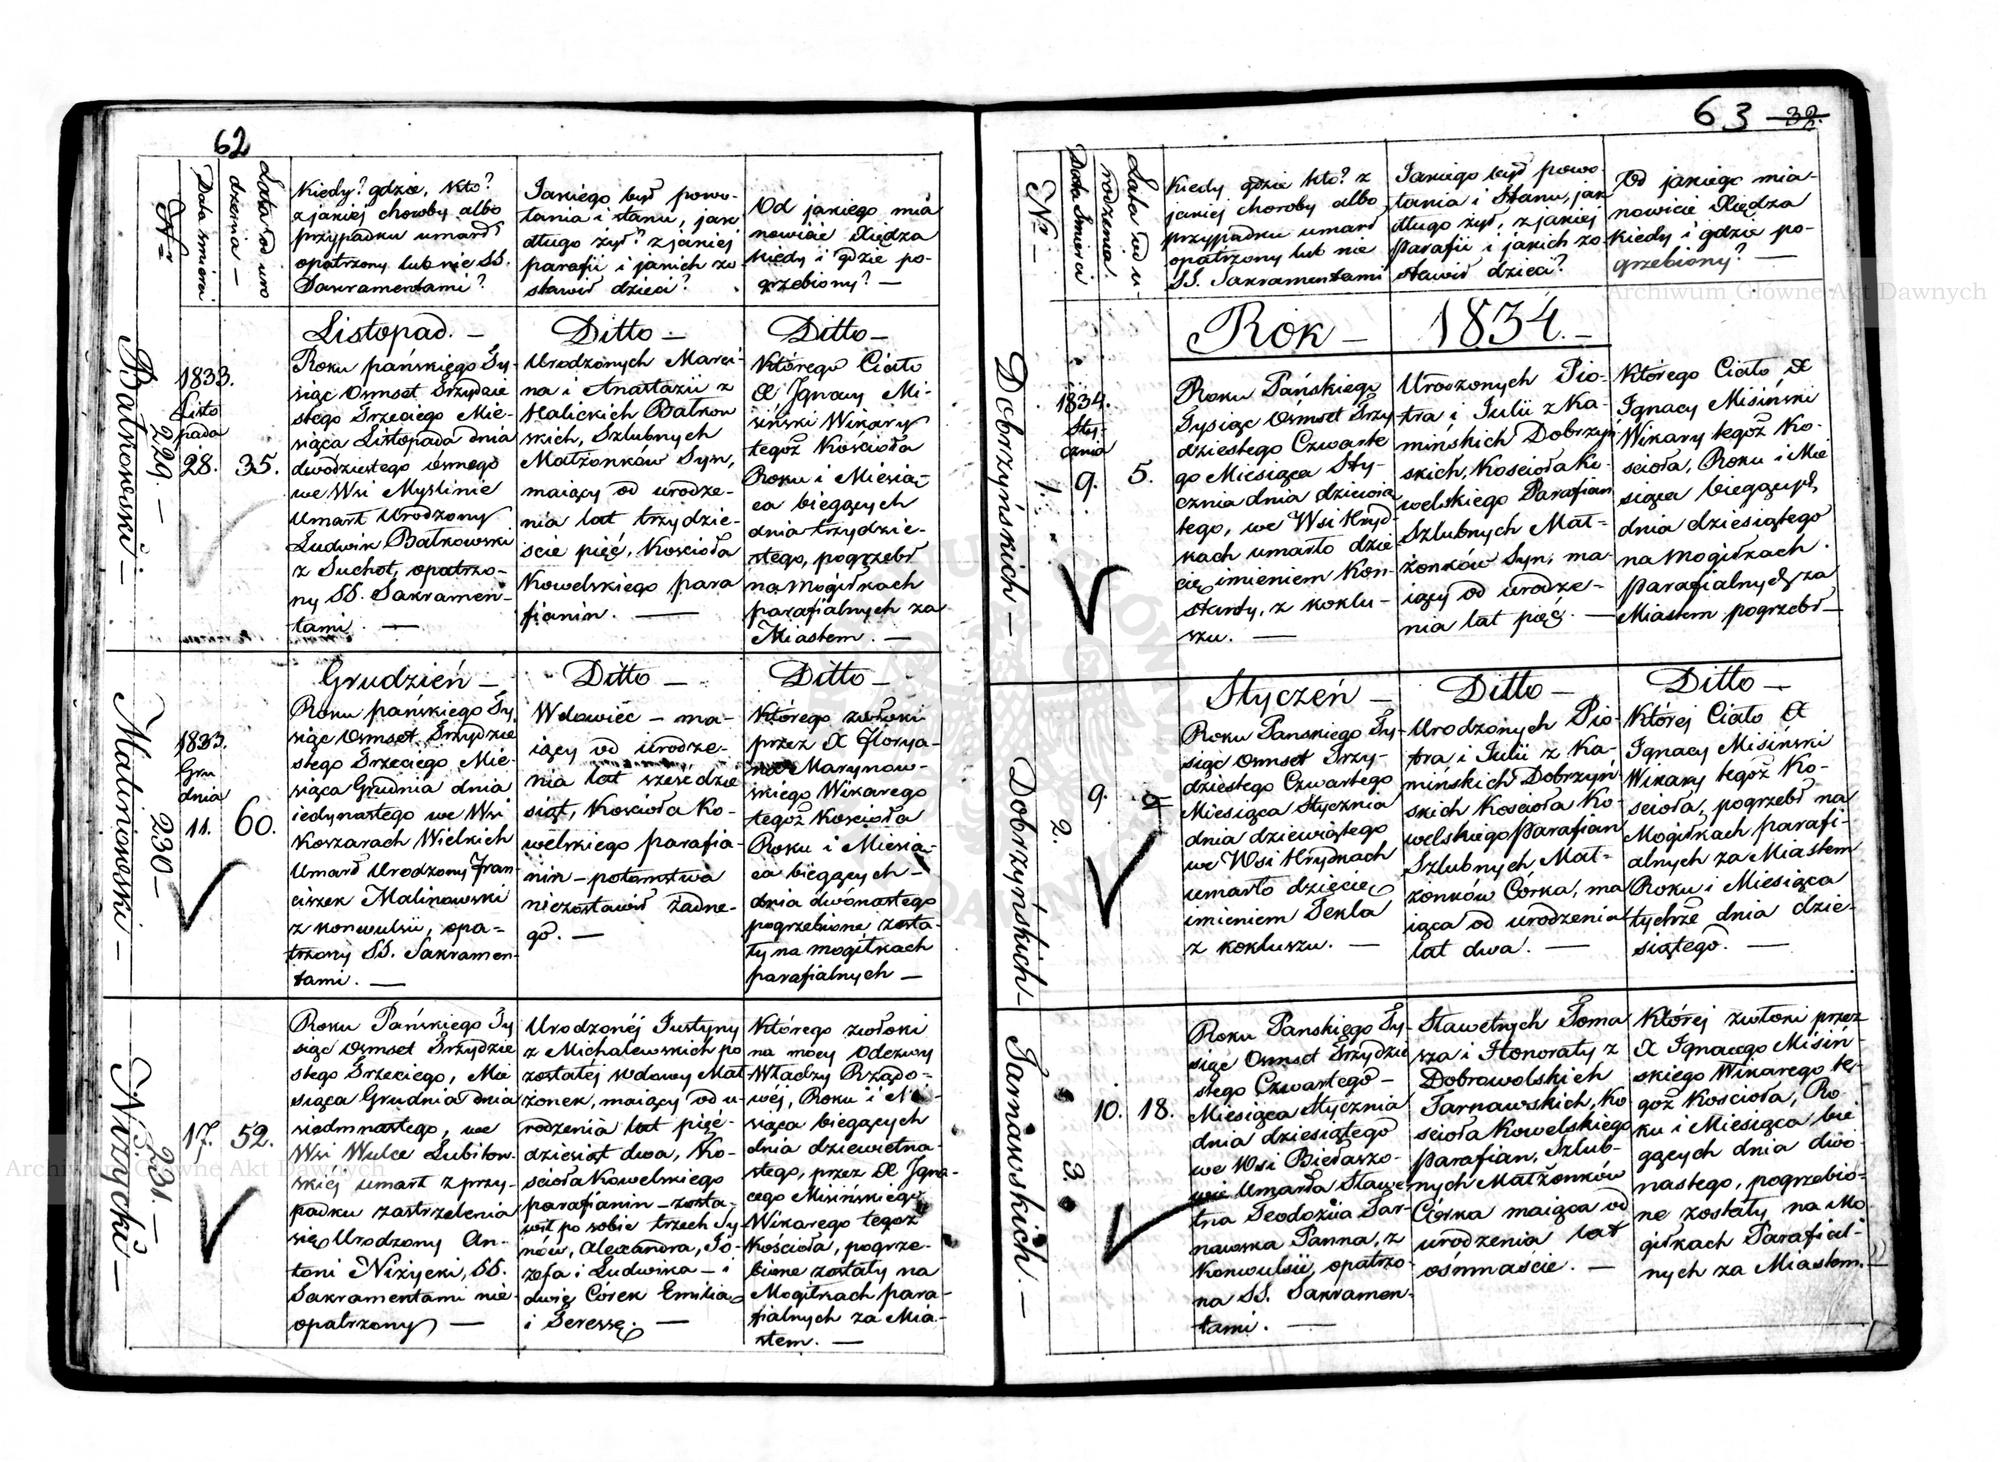 62
Nr
Data śmierci
Lata od uro
dzenia —
Kiedy? gdzie, Kto?
z jakiej choroby albo
przypadku umarł
opatrzony lub nie SS.
Sakramentami?
Jakiego był powo-
łania i stanu, jak
długo żył? z jakiej
parafii i jakich zo
stawił dzieci?
Od jakiego mia
nowicie Xiędza
kiedy i gdzie po-
grzebiony? —
Bałkowski —
229. —
1833.
Listo
pada
28.
35.
Listopad. —
Roku pańskiego Ty-
siąc Ośmset Trzydzie
stego Trzeciego Mie-
siąca Listopada dnia
dwódziestego ósmego
we Wsi Myślinie
Umarł Urodzony
Ludwik Bałkowski
z Suchot, opatrzo-
ny SS. Sakramen-
tami. —
Ditto —
Urodzonych Marci-
na i Anastazii z
Halickich Bałkow
skich, Szlubnych
Małżonków Syn,
maiący od urodze-
nia lat trzydzie-
ście pięć, Kościoła
Kowelskiego para
fianin. —
Ditto —
Którego Ciało
X Ignacy Mi-
siński Wikary
tegoż Kościoła
Roku i Miesią-
ca bieżących
dnia trzydzie-
stego, pogrzebł
na Mogiłkach
parafialnych za
Miastem. —
Malinowski —
230 —
1833.
Gru
dnia
11.
60.
Grudzień —
Roku pańskiego Ty-
siąc Ośmset Trzydzie
stego Trzeciego Mie-
siąca Grudnia dnia
iedynastego we Wsi
Koszarach Wielkich
Umarł Urodzony Fran-
ciszek Malinowski
z konwulsii, opa-
trzony SS. Sakramen-
tami. —
Ditto —
Wdowiec — ma-
iący od urodze-
nia lat sześćdzie
siąt, Kościoła Ko-
welskiego parafia-
nin — potomstwa
niezostawił żadne-
go. —
Ditto —
Którego zwłoki
przez X Florya-
na Marynow-
skiego Wikarego
tegoż Kościoła
Roku i Miesią-
ca bieżących —
dnia dwónastego
pogrzebione zosta-
ły na mogiłkach
parafialnych —
Niżycki —
231. —
17.
52.
Roku Pańskiego Ty
siąc Ośmset Trzydzie
stego Trzeciego, Mie
siąca Grudnia dnia
siedmnastego, we
Wsi Wulce Lubitow-
skiej umarł z przy-
padku zastrzelenia
się Urodzony An-
toni Niżycki, SS.
Sakramentami nie-
opatrzony —
Urodzonéj Justyny
z Michalewskich po
zostałej wdowy Mał
żonek, maiący od u-
rodzenia lat pięć-
dziesiąt dwa, Ko-
ścioła Kowelskiego
parafianin — zosta-
wił po sobie trzech Sy-
nów, Alexandra, Jó-
zefa i Ludwika — i
dwie Corek Emilią
i Teressę. —
Którego zwłoki
na mocy Odezwy
Władzy Rządo-
wéj, Roku i Mie-
siąca bieżących
dnia dziewietna-
stego, przez X Igna-
cego Misińskiego
Wikarego tegoż
Kościoła, pogrze-
bione zostały na
Mogiłkach para-
fialnych za Mia-
stem. —
63 32.
Nr —
Data Śmierci
Lata od u-
rodzenia.
Kiedy gdzie kto? z
jakiej choroby albo
przypadku umarł
opatrzony lub nie
SS. Sakramentami
Jakiego był powo-
łania i Stanu, jak
długo żył, z jakiej
Parafii i jakich zo
stawił dzieci?
Od jakiego mia-
nowicie Xiędza
Kiedy i gdzie po-
grzebiony? —
Rok — 1834. —
Dobrzyńskich —
1.
1834.
Sty-
cznia
9.
5.
Roku Pańskiego
Tysiąc Ośmset Trzy
dziestego Czwarte
go Miesiąca Sty-
cznia dnia dziewią
tego, we Wsi Hryd-
kach umarło dzie
cię imieniem Kon-
stanty, z koklu-
szu. —
Urodzonych Pio-
tra i Julii z Ka-
mińskich Dobrzyń
skich, Kościoła Ko-
welskiego Parafian
Szlubnych Mał-
żonków Syn, ma-
iący od urodze-
nia lat pięć. —
Którego Ciało X
Ignacy Misiński
Wikary tegoż Ko-
ścioła, Roku i Mie
siąca bieżących
dnia dziesiątego
na mogiłkach
Parafialnych za
Miastem pogrzebł —
Dobrzyńskich —
2.
9.
2
Styczeń —
Roku Panskiego Ty-
siąc Osmset Trzy-
dziestego Czwartego
Miesiąca Stycznia
dnia dziewiątego
we Wsi Hrydkach
umarło dziecię
imieniem Tekla
z kokluszu. —
Ditto —
Urodzonych Pio-
tra i Julii z Ka-
mińskich Dobrzyń
skich Kościoła Ko-
welskiego Parafian
Szlubnych Mał-
żonków Córka, ma
iąca od urodzenia
lat dwa. —
Ditto —
Której Ciało X
Ignacy Misiński
Wikary tegoż Ko-
ścioła, pogrzebł na
Mogiłkach parafi-
alnych za Miastem
Roku i Miesiąca
tychże dnia dzie-
siątego. —
Tarnawskich. —
3.
10.
18.
Roku Panskiego Ty-
siąc Osmset Trzydzie
stego Czwartego —
Miesiąca Stycznia
dnia dziesiątego
we Wsi Bielaszo-
wie Umarła Sławe-
tna Teodozija Tar-
nawska Panna, z
Konwulsii, opatrzo-
na SS. Sakramen-
tami. —
Sławetnych Toma
sza i Honoraty z
Dobrowolskich
Tarnawskich, Ko
ścioła Kowelskiego
Parafian, Szlub-
nych Małżonków
Córka maiąca od
urodzenia lat
osmnaście. —
Której zwłoki przez
X Ignacego Misiń-
skiego Wikarego te-
goż Kościoła, Ro-
ku i Miesiąca bie
żących dnia dwó-
nastego, pogrzebio-
ne zostały na Mo
giłkach Parafial-
nych za Miastem.
Archiwum Główne Akt Dawnych
Archiwum Główne Akt Dawnych